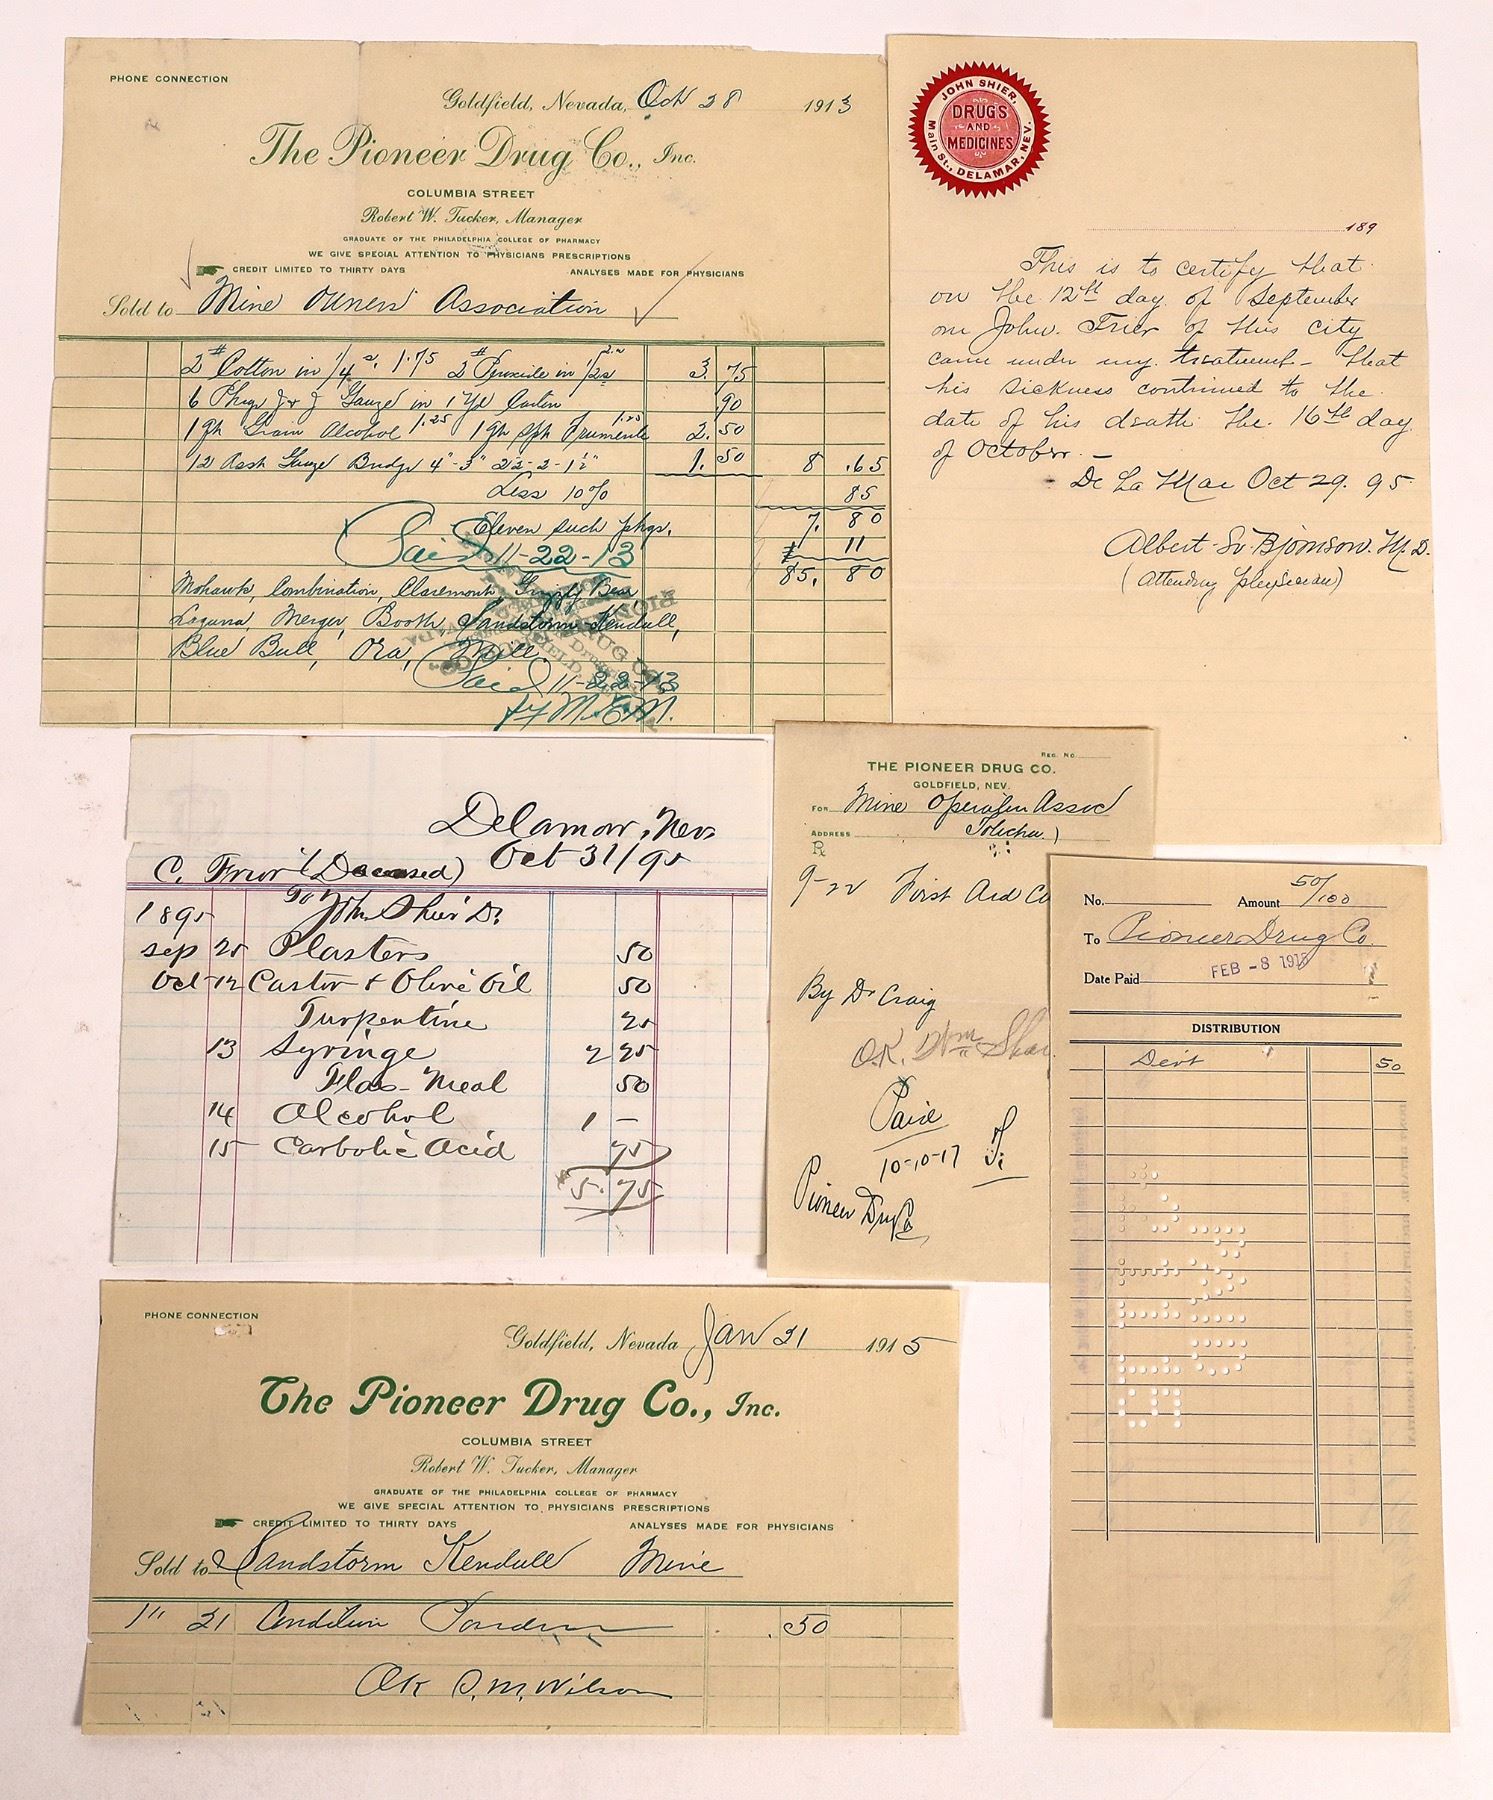 PHONE CONNECTION
Goldfield, Nevada, Oct 28 1913
The Pioneer Drug Co., Inc.
COLUMBIA STREET
Robert W. Tucker, Manager
GRADUATE OF THE PHILADELPHIA COLLEGE OF PHARMACY
WE GIVE SPECIAL ATTENTION TO PHYSICIANS PRESCRIPTIONS
CREDIT LIMITED TO THIRTY DAYS ANALYSES MADE FOR PHYSICIANS
Sold to Mine Owners Association
2# Cotton in 1/4s 1.75 2# in 1/2s 2.00 3. 75
6 Phgs J & J Gauze in 1 Yd .90
1 Grain Alcohol 1.25 1 Frumenti 1.25 2. 50
12 Asst Gauze Bndgs 4"-3" 2 1/2-2-1 1/2" 1. 50 8 .65
Less 10% 85
Eleven such phgs. 7. 80
Paid 11-22-13 11
85. 80
Mohawk, Combination, Claremont, Grizzly Bear
Laguna Merger, Booth Sandstorm Kendall,
Blue Bull, Oro, Mill
Paid 11-22-13
JONH SHIER,
DRUGS
AND
MEDICINES
Main St., DELAMAR, NEV.
189
This is to certify that
on the 12th day of September
on John. Frier of this city
came under my treatment - that
his sickness continued to the
date of his death the 16th day
of October. —
De La Mar Oct 29. 95.
Albert Sv Bjornson. M.D.
(attending physician)
Delamar, Nev
Oct 31/95
C. Frior (Deceased)
To John Shier Dr.
1895
Sep 25 Plasters 50
Oct 12 Castor + Olive Oil 50
Turpentine 25
13 Syringe 2 25
Flax-Meal 50
14 Alcohol 1 —
15 Carbolic Acid 75
$5.75
REG. NO.
THE PIONEER DRUG CO.
GOLDFIELD, NEV.
FOR Mine Operators Assoc
ADDRESS Tolicha
℞
9-22 First Aid Co
By Dr Craig
O.K. Wm Shar
Paid
10-10-17
Pioneer Drug Co
No. Amount 50/100
To Pioneer Drug Co.
Date Paid FEB -8 1915
DISTRIBUTION
Devt 50
PAID
PHONE CONNECTION
Goldfield, Nevada Jan 21 1915
The Pioneer Drug Co., Inc.
COLUMBIA STREET
Robert W. Tucker, Manager
GRADUATE OF THE PHILADELPHIA COLLEGE OF PHARMACY
WE GIVE SPECIAL ATTENTION TO PHYSICIANS PRESCRIPTIONS
CREDIT LIMITED TO THIRTY DAYS ANALYSES MADE FOR PHYSICIANS
Sold to Sandstorm Kendall Mine
1" 21 Condition Powders .50
OK S. M. Wilson